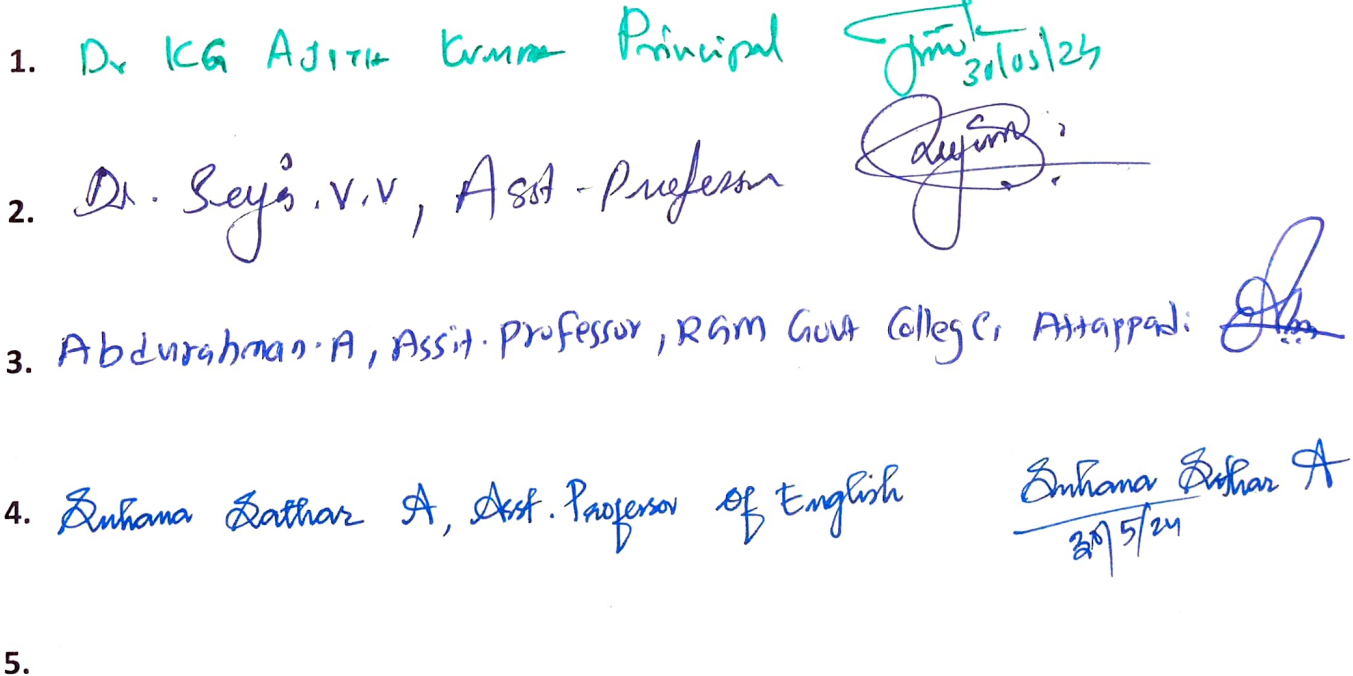 1. Dr KG AJITH Kumar Principal 30/05/24
2. Dr. Seyja.V.V, Asst-Professor
3. Abdurahman.A, Assit. Professor, RGM Govt College, Attappadi
4. Suhana Sathar A, Asst. Professor of English Suhana Sathar A
30/5/24
5.